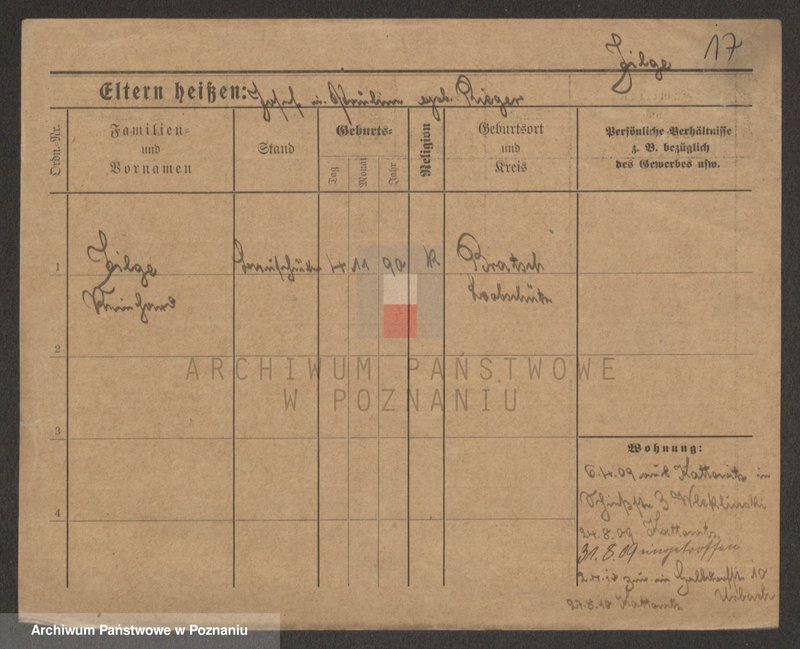 Zilge 17
Eltern heißen: Josef u. Pauline geb. Rieger
Ordn.-Nr.
Familien- und Vornamen
Stand
Geburts-
Tag
Monat
Jahr
Religion
Geburtsort und Kreis
Persönliche Verhältnisse
z. B. bezüglich
des Gewerbes usw.
1 Zilge 4 11 90 K Bratsch
Reinhard Leobschütz
2
3
4
Wohnung:
6.4.09 aus Kattowitz in
3 Weklinski
24.8.09 Kattowitz
31.8.09 eingetroffen
10
Urbach
27.8.10 Kattowitz
ARCHIWUM PAŃSTWOWE
W POZNANIU
Archiwum Państwowe w Poznaniu